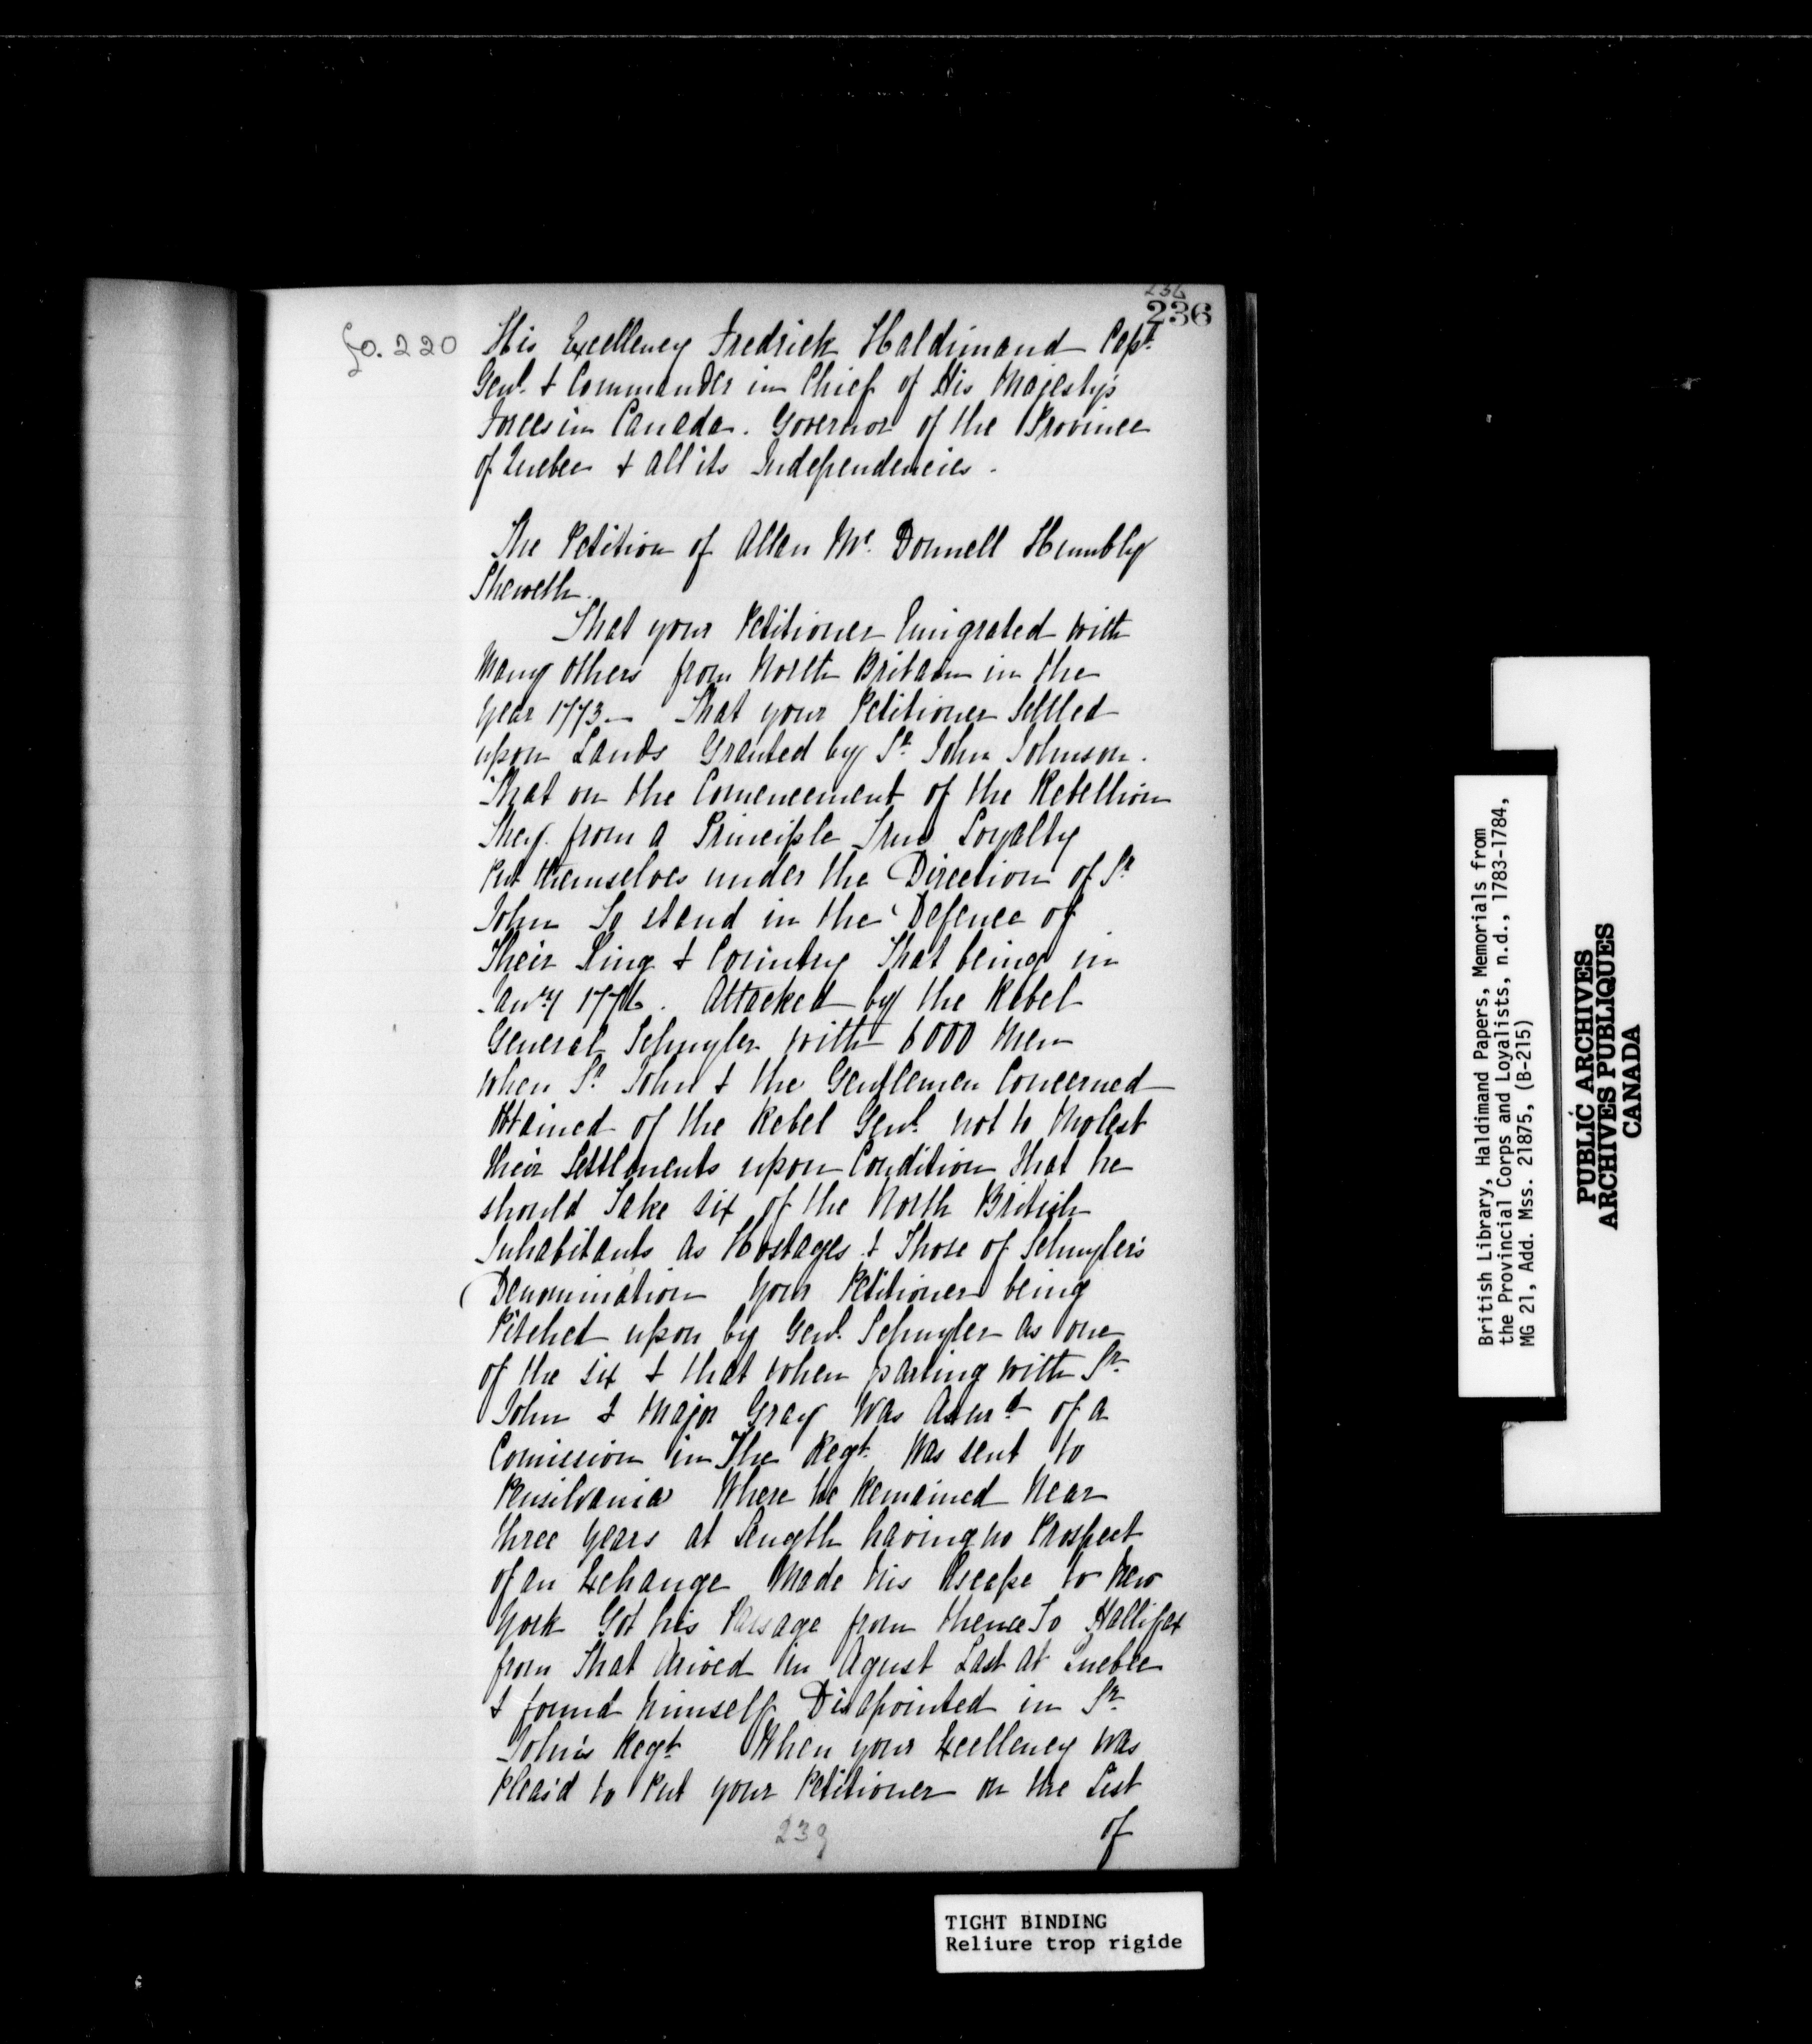 236
236
fo. 220
His Excellency Fredrick Haldimand Capt.
Genl. & Commander in Chief of His Majesty's
Forces in Canada. Governor of the Province
of Quebec & all its Independencies.
The Petition of Allan Mc. Donnell Humbly
Sheweth.
That your Petitioner Emigrated with
Many others from North Britain in the
Year 1773 — That your Petitioner Settled
upon Lands Granted by Sr. John Johnson.
That on the Comencement of the Rebellion
They from a Principle True Loyalty
Put themselves under the Direction of Sr.
John To stand in the Defence of
Their King & Country That being in
Janry 1776. Attacked by the Rebel
General Schuyler with 6000 Men
When Sr. John & the Gentlemen Concerned
Obtained of the Rebel Genl. not to Molest
their Settlements upon Condition that he
should Take Six of the North British
Inhabitants as Hostages & Those of Schuyler's
Denomination Your Petitioner being
Pitched upon by Genl. Schuyler as one
of the Six & that when parting with Sr.
John & Major Gray Was Assurd. of a
Comission in The Regt. Was sent to
Pensilvania Where he Remained Near
three Years at Length having no Prospect
of an Exchange Made his Escape to New
York Got his Passage from thence To Hallifax
from That Arived in Agust Last at Quebec
& found himself Disapointed in Sr.
John's Regt. When your Excellency was
Pleas'd to Put your Petitioner on the List
of
239
TIGHT BINDING
Reliure trop rigide
British Library, Haldimand Papers, Memorials from
the Provincial Corps and Loyalists, n.d., 1783-1784,
MG 21, Add. Mss. 21875, (B-215)
PUBLIC ARCHIVES
ARCHIVES PUBLIQUES
CANADA